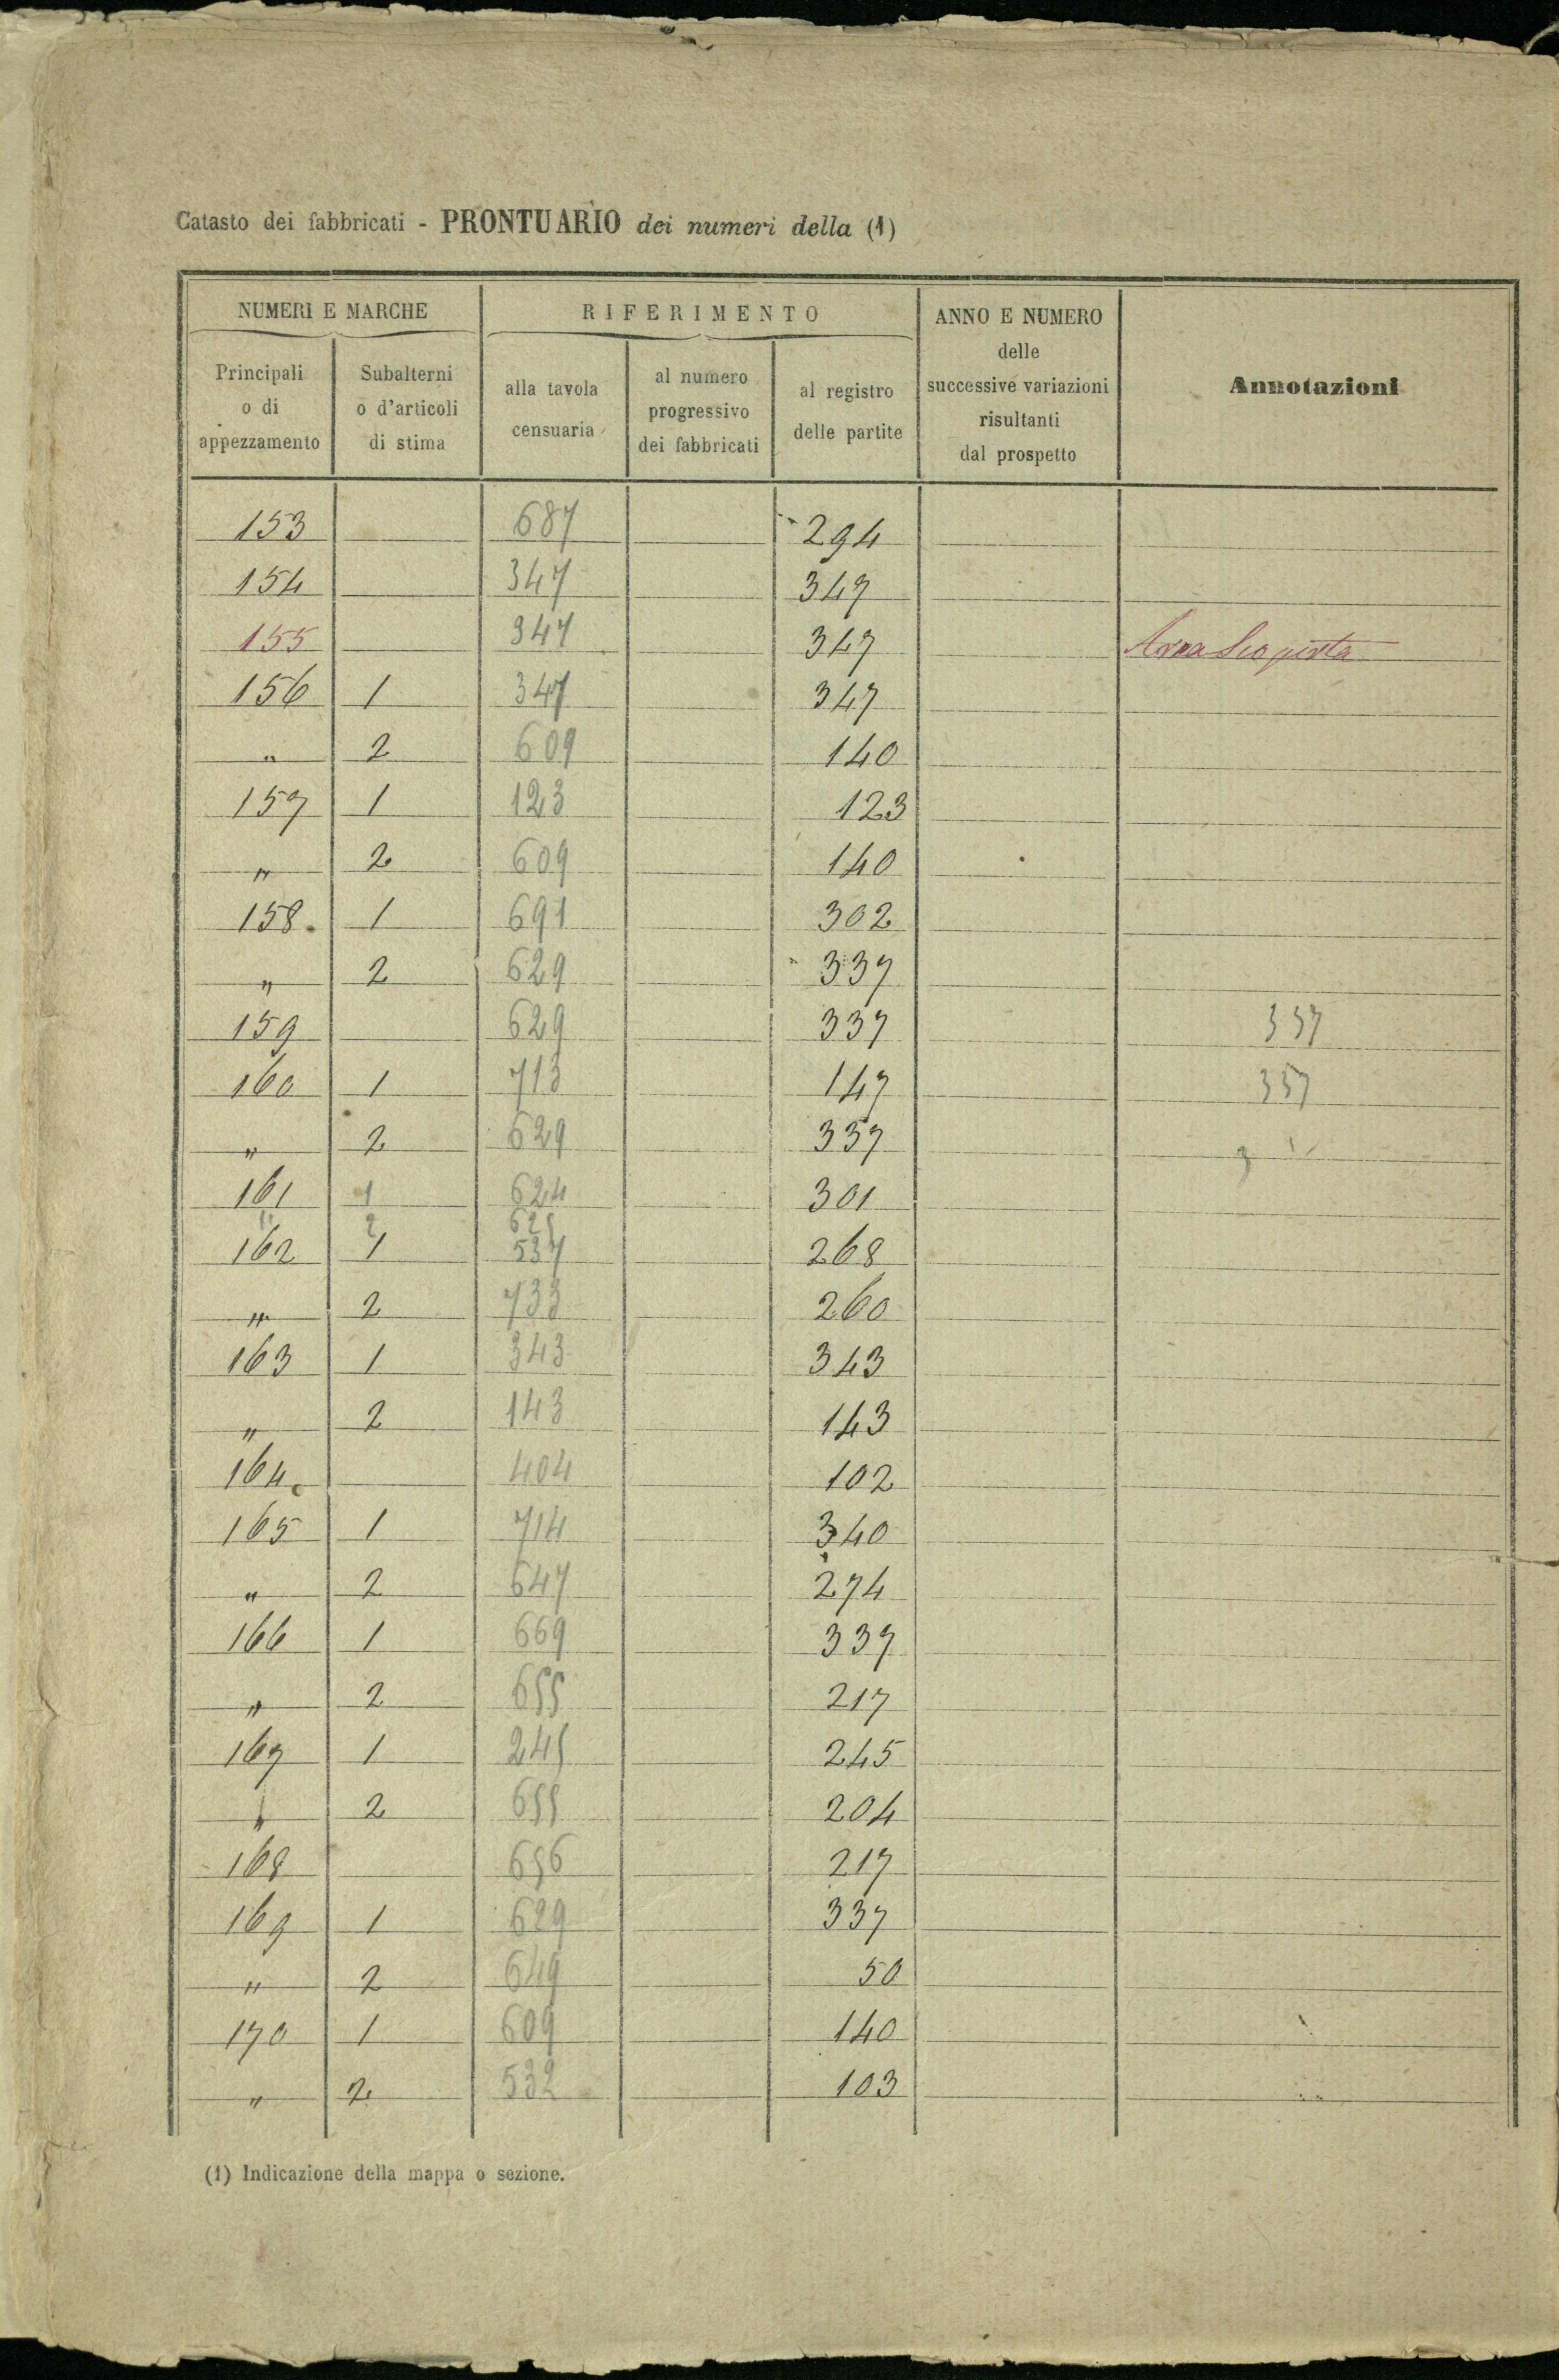 Catasto dei fabbricati - PRONTUARIO dei numeri della (1)
NUMERI E MARCHE RIFERIMENTO ANNO E NUMERO delle successive variazioni risultanti dal prospetto Annotazioni
Principali o di appezzamento Subalterni o d'articoli di stima alla tavola censuaria al numero progressivo dei fabbricati al registro delle partite
153 687 294
154 347 347
155 347 347 Area Scoperta
156 1 347 347
" 2 609 140
157 1 123 123
" 2 609 140
158. 1 691 302
" 2 629 337
159 629 337 337
160 1 713 147 337
" 2 629 337
161 1 624 301
" 2 625
162 1 537 268
" 2 733 260
163 1 343 343
" 2 143 143
164. 404 102
165 1 714 340
" 2 647 274
166 1 669 337
" 2 655 217
167 1 245 245
" 2 655 204
168 656 217
169 1 629 337
" 2 649 50
170 1 609 140
" 2 532 103
(1) Indicazione della mappa o sezione.